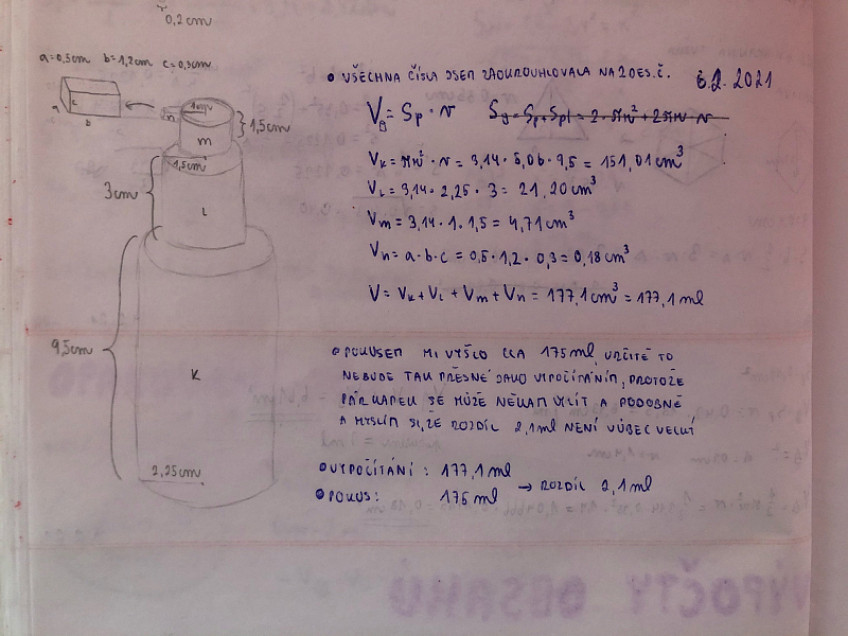 0,2cm
a=0,5cm b=1,2cm c=0,3cm
a
c
b
n
1cm
1,5cm
m
1,5cm
3cm
L
9,5cm
K
2,25cm
• VŠECHNA ČÍSLA JSEM ZAOKROUHLOVALA NA 2 DES. Č.
8.2. 2021
V = Sp · v
VK = πr² · v = 3,14 · 5,06 · 9,5 = 151,01 cm³
VL = 3,14 · 2,25 · 3 = 21,20 cm³
Vm = 3,14 · 1 · 1,5 = 4,71 cm³
Vn = a·b·c = 0,5 · 1,2 · 0,3 = 0,18 cm³
V = VK + VL + Vm + Vn = 177,1 cm³ = 177,1 ml
• POKUSEM MI VYŠLO CCA 175 ml, URČITĚ TO
NEBUDE TAK PŘESNÉ JAKO VYPOČÍTÁNÍM, PROTOŽE
PÁR KAPEK SE MŮŽE NĚKAM VYLÍT A PODOBNĚ
A MYSLÍM SI, ŽE ROZDÍL 2,1 ml NENÍ VŮBEC VELKÝ
• VYPOČÍTÁNÍ : 177,1 ml
• POKUS : 175 ml → ROZDÍL 2,1 ml
VÝPOČTY OBSAHŮ